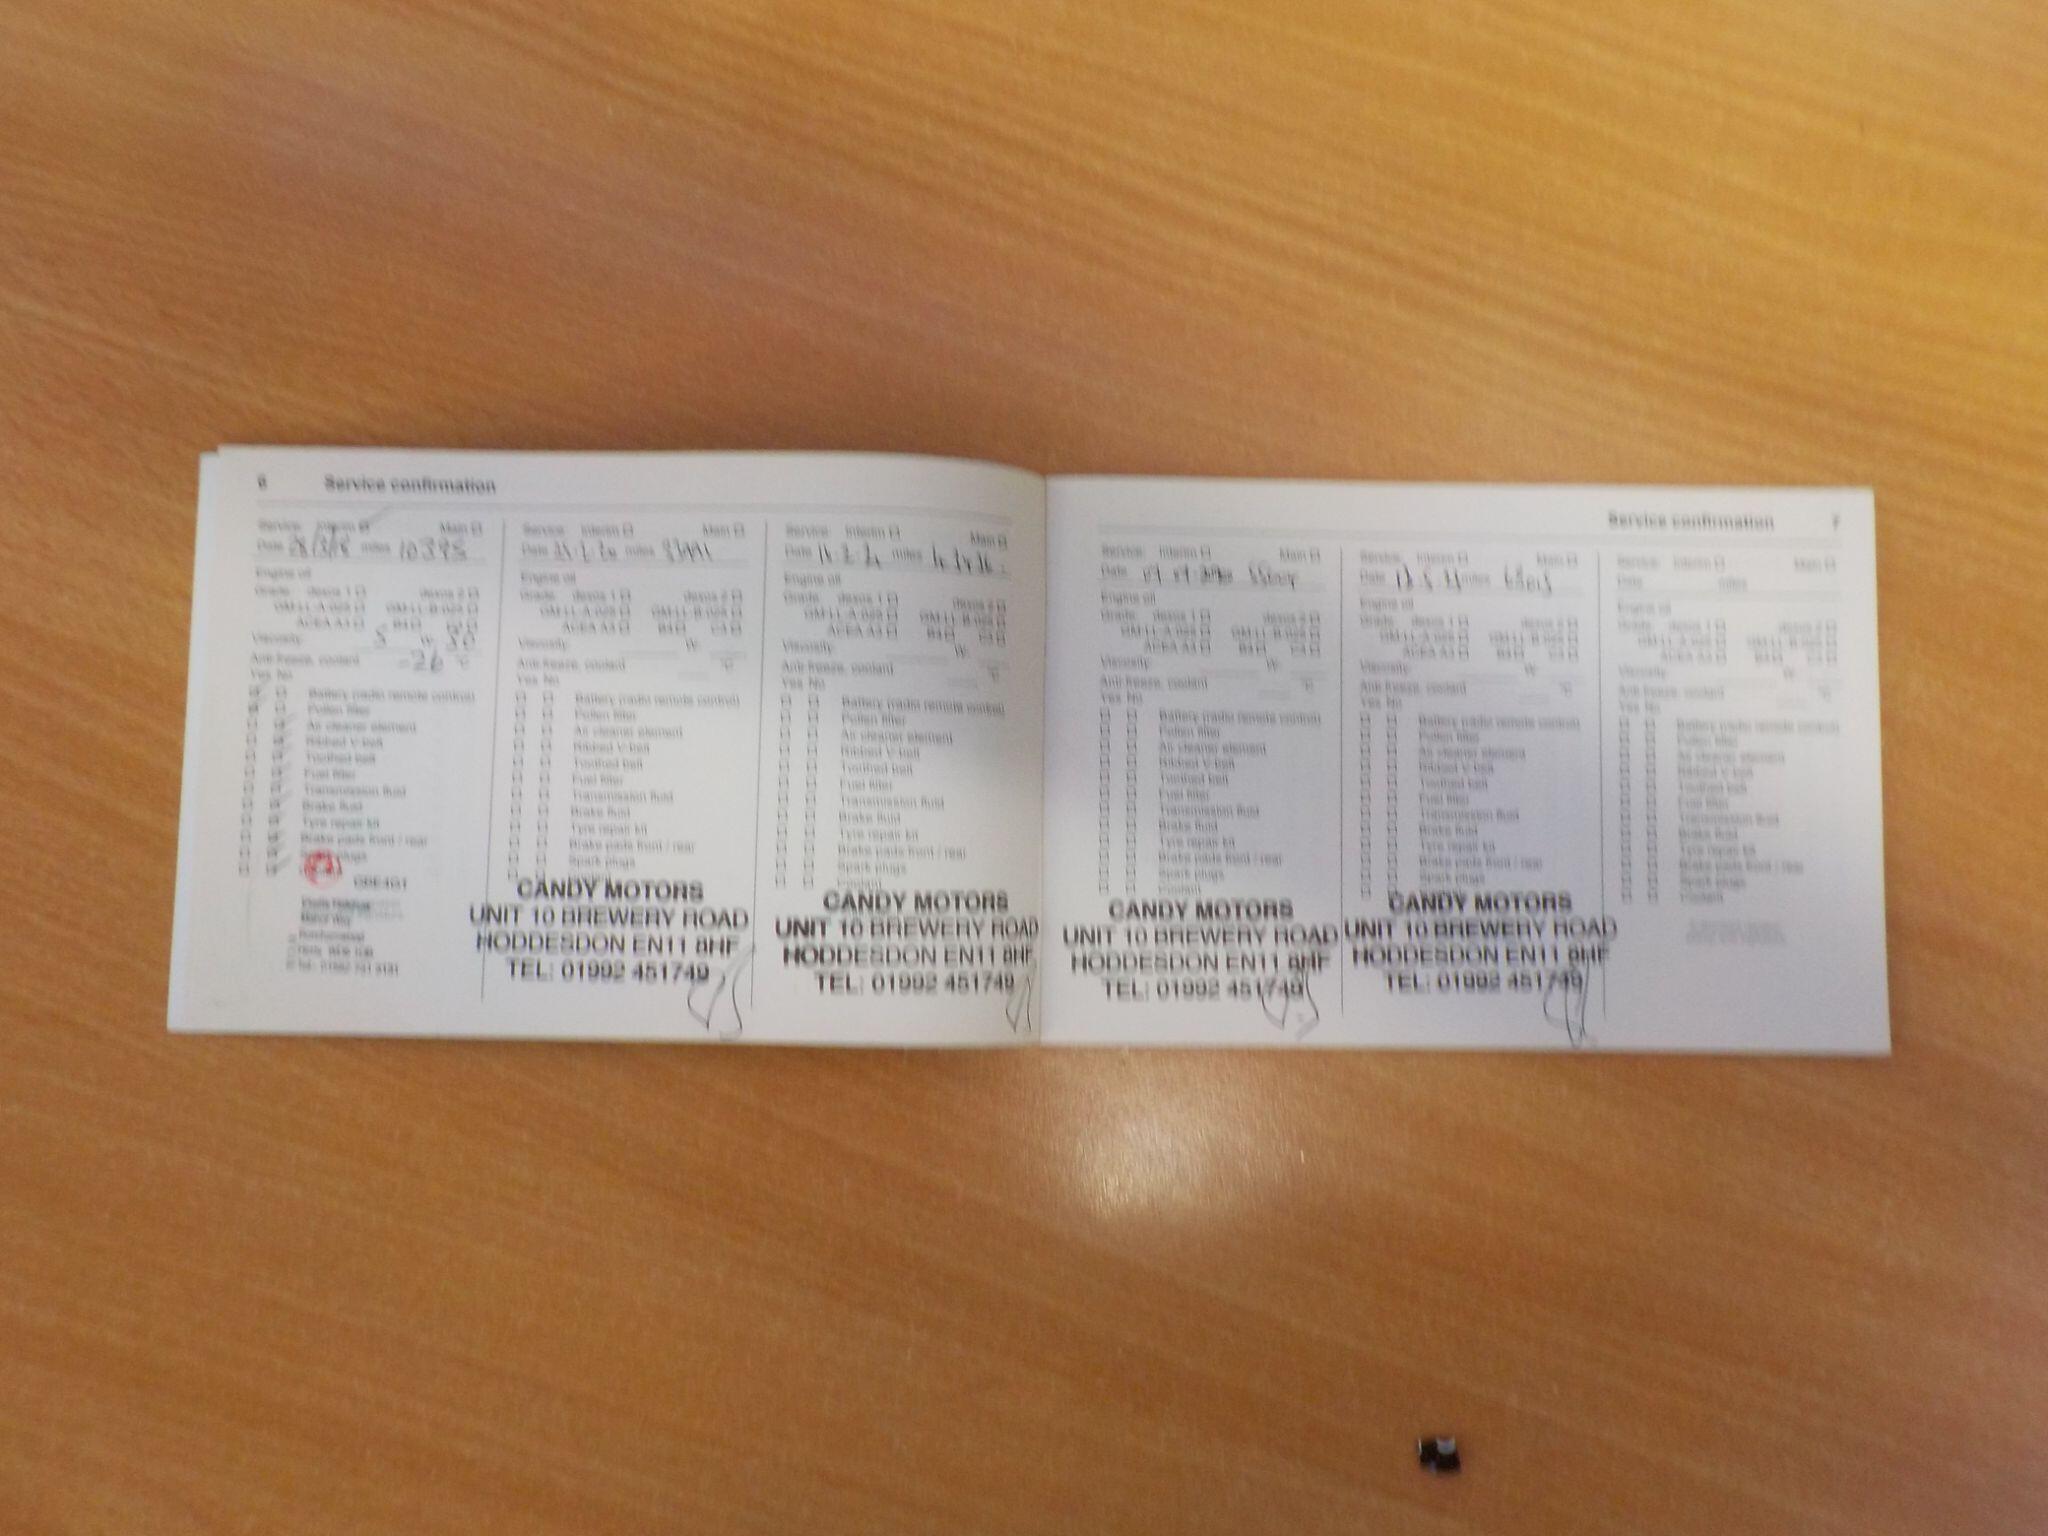 6 Service confirmation
Service: Interim Main
Date miles 10395
Engine oil
Grade: dexos 1 dexos 2
GM-LL-A-025 GM-LL-B-025
ACEA A3
Viscosity: 5 W 30
Anti-freeze, coolant -26 °C
Yes No
Battery (radio remote control)
Pollen filter
Air cleaner element
Ribbed V-belt
Toothed belt
Fuel filter
Transmission fluid
Brake fluid
Tyre repair kit
Brake pads front / rear
plugs
Service: Interim Main
Date miles
Engine oil
Grade: dexos 1 dexos 2
GM-LL-A-025 GM-LL-B-025
ACEA A3 B4 C3
Viscosity: W-
Anti-freeze, coolant °C
Yes No
Battery (radio remote control)
Pollen filter
Air cleaner element
Ribbed V-belt
Toothed belt
Fuel filter
Transmission fluid
Brake fluid
Tyre repair kit
Brake pads front / rear
Spark plugs
CANDY MOTORS
UNIT 10 BREWERY ROAD
HODDESDON EN11 8HF
TEL: 01992 451749
Service: Interim Main
Date miles
Engine oil
Grade: dexos 1 dexos 2
GM-LL-A-025 GM-LL-B-025
ACEA A3 B4 C3
Viscosity: W-
Anti-freeze, coolant °C
Yes No
Battery (radio remote control)
Pollen filter
Air cleaner element
Ribbed V-belt
Toothed belt
Fuel filter
Transmission fluid
Brake fluid
Tyre repair kit
Brake pads front / rear
Spark plugs
CANDY MOTORS
UNIT 10 BREWERY ROAD
HODDESDON EN11 8HF
TEL: 01992 451749
Service confirmation 7
Service: Interim Main
Date
Engine oil
Grade: dexos 1 dexos 2
GM-LL-A-025 GM-LL-B-025
ACEA A3 B4 C3
Viscosity: W-
Anti-freeze, coolant °C
Yes No
Battery (radio remote control)
Pollen filter
Air cleaner element
Ribbed V-belt
Toothed belt
Fuel filter
Transmission fluid
Brake fluid
Tyre repair kit
Brake pads front / rear
Spark plugs
Coolant
CANDY MOTORS
UNIT 10 BREWERY ROAD
HODDESDON EN11 8HF
TEL: 01992 451749
Service: Interim Main
Date miles
Engine oil
Grade: dexos 1 dexos 2
GM-LL-A-025 GM-LL-B-025
ACEA A3 B4 C3
Viscosity: W-
Anti-freeze, coolant °C
Yes No
Battery (radio remote control)
Pollen filter
Air cleaner element
Ribbed V-belt
Toothed belt
Fuel filter
Transmission fluid
Brake fluid
Tyre repair kit
Brake pads front / rear
Spark plugs
CANDY MOTORS
UNIT 10 BREWERY ROAD
HODDESDON EN11 8HF
TEL: 01992 451749
Service: Interim Main
Date miles
Engine oil
Grade: dexos 1 dexos 2
GM-LL-A-025 GM-LL-B-025
ACEA A3 B4 C3
Viscosity: W-
Anti-freeze, coolant °C
Yes No
Battery (radio remote control)
Pollen filter
Air cleaner element
Ribbed V-belt
Toothed belt
Fuel filter
Transmission fluid
Brake fluid
Tyre repair kit
Brake pads front / rear
Spark plugs
Coolant